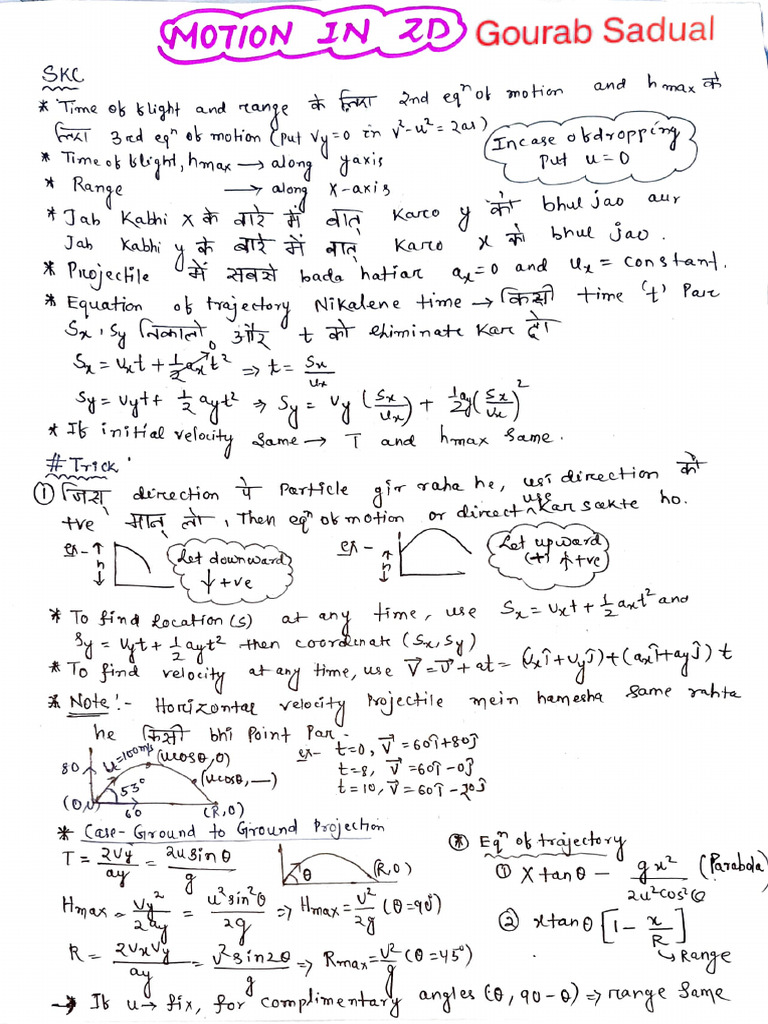 MOTION IN 2D Gourab Sadual
SKC
* Time of flight and range के लिए 2nd eqⁿ of motion and hmax के
लिए 3rd eqⁿ of motion (Put Vy=0 in v²-u²=2as)
Incase of dropping
Put u=0
* Time of flight, hmax → along yaxis
* Range → along x-axis
* Jab Kabhi x के बारे में बात Karo y को bhul jao aur
Jab Kabhi y के बारे में बात Karo x को bhul jao.
* Projectile में सबसे bada hatiar ax=0 and ux = constant.
* Equation of trajectory Nikalene time → किसी time 't' Par
Sx, Sy निकालो और t को eliminate Kar दो
Sx = uxt + 1/2 axt² ⇒ t = Sx/ux
0
Sy = Vyt + 1/2 ayt² ⇒ Sy = Vy (Sx/ux) + 1/2 ay (Sx/ux)²
* If initial velocity same → T and hmax same.
# Trick
① जिस direction पे Particle gir raha he, usi direction को
+ve मान लो, Then eqⁿ of motion or direct use Kar sakte ho.
ex- h
Let downward
↓ +ve
ex- h
Let upward
(+) ↑ +ve
* To find location (s) at any time, use Sx = uxt + 1/2 axt² and
Sy = Vyt + 1/2 ayt² then coordinate (Sx, Sy)
* To find velocity at any time, use V⃗ = U⃗ + at = (Uxî + Vyĵ) + (axî + ayĵ) t
* Note:- Horizontal velocity Projectile mein hamesha same rahta
he किसी bhi Point Par.
80 u=100m/s (ucosθ, 0) (ucosθ, —) 53° (0,0) 60 (R,0)
ex- t=0, V⃗ = 60î+80ĵ
t=8, V⃗ = 60î-0ĵ
t=10, V⃗ = 60î-20ĵ
* Case- Ground to Ground Projection
T = 2Vy/ay = 2u sinθ/g
θ (R,0)
Hmax = Vy²/2ay = u²sin²θ/2g ⇒ Hmax = v²/2g (θ=90°)
R = 2VxVy/ay = v²sin2θ/g ⇒ Rmax = v²/g (θ=45°)
* Eqⁿ of trajectory
① X tanθ - gx²/2u²cos²θ (Parabola)
② x tanθ [1 - x/R]
↳ Range
→ If u → fix, for complimentary angles (θ, 90-θ) ⇒ range same